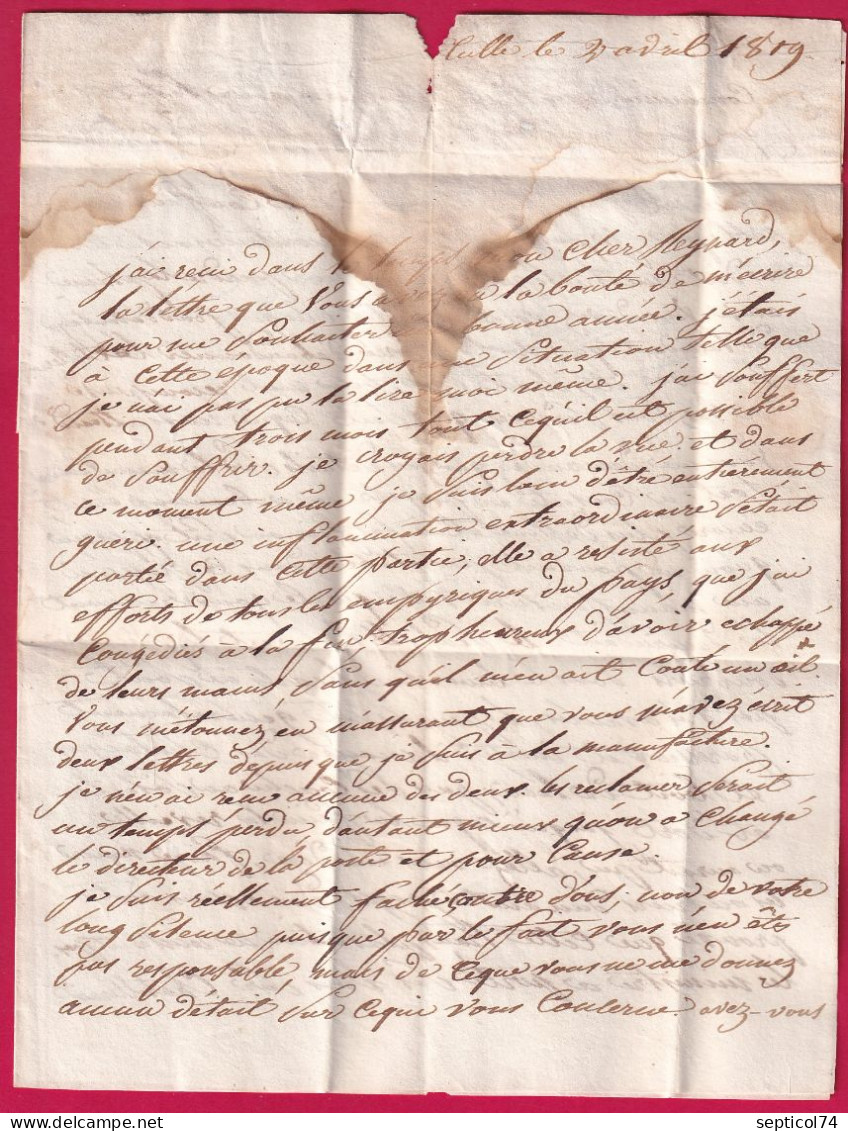 Tulle le 2 avril 1819
j'ai reçu dans le temps mon cher Meynard,
la lettre que vous avez eu la bonté de m'écrire
pour me souhaiter la bonne année. j'étais
à cette époque dans une situation telle que
je n'ai pas pu la lire moi même. j'ai souffert
pendant trois mois tout cequ'il est possible
de souffrir. je croyais perdre la vue. et dans
ce moment même je suis loin d'être entierement
gueri. une inflammation extraordinaire s'était
portée dans cette partie, elle a resisté aux
efforts de tous les empyriques du pays, que j'ai
congédiés à la fin. trop heureux d'avoir echappé
de leurs mains, sans qu'il m'en ait couté un œil.
vous m'étonnez en m'assurant que vous m'avez écrit
deux lettres depuis que je suis à la manufacture.
je n'en ai reçu aucune des deux. les reclamer serait
un temps perdu d'autant mieux qu'on a changé
le directeur de la poste et pour cause.
je suis réellement faché contre vous, non de votre
long silence puisque par le fait vous n'en êtes
pas responsable, mais de ceque vous ne me donnez
aucun détail sur cequi vous concerne. avez-vous
septicol74